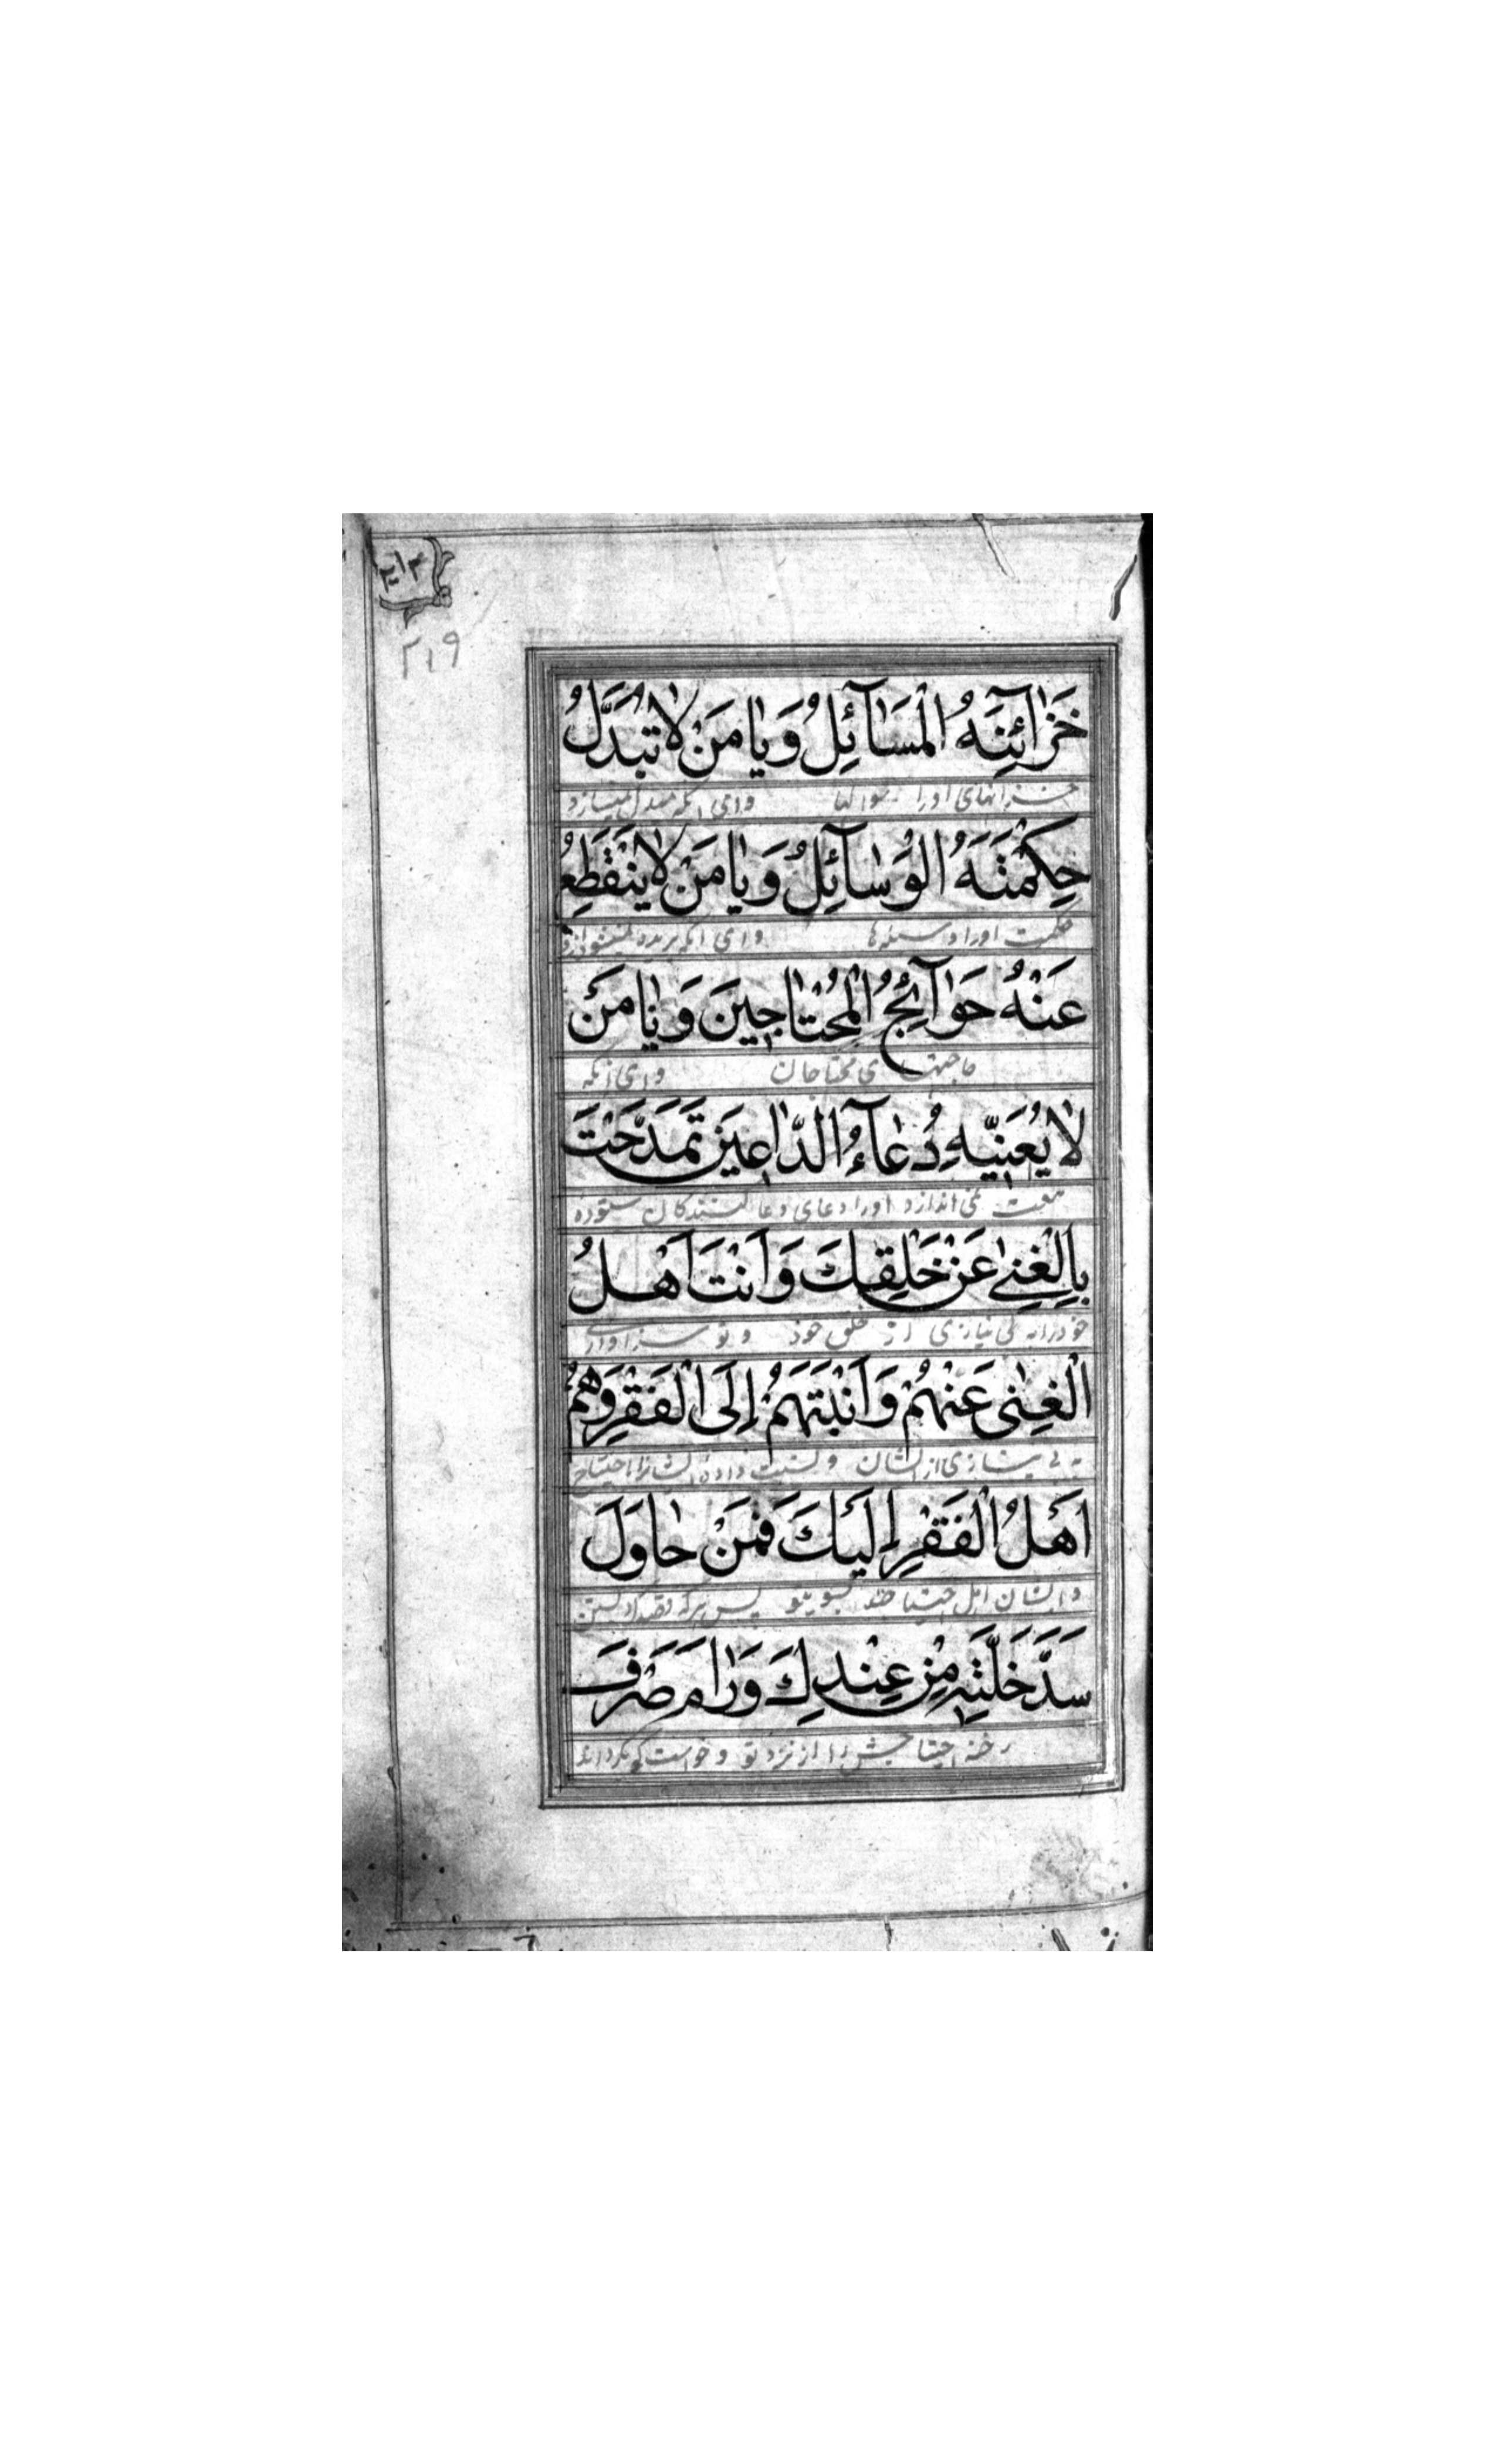 ۲۱۹
خَزٰآئِنَهُ الْمَسٰآئِلُ وَيٰا مَنْ لٰا تُبَدِّلُ
خزانهای او را سوالها وای آنکه مبدل نمیسازد
حِكْمَتَهُ الْوَسٰآئِلُ وَيٰا مَنْ لٰا يَنْقَطِعُ
حکمت او را وسیله‌ها وای آنکه بریده نمیشود از او
عَنْهُ حَوٰآئِجُ الْمُحْتٰاجِينَ وَيٰا مَنْ
حاجتهای محتاجان وای آنکه
لٰا يُعَنِّيهِ دُعٰآءُ الدّٰاعِينَ تَمَدَّحْتَ
بتعب نمی اندازد او را دعای دعا کنندگان ستوده
بِالْغِنٰى عَنْ خَلْقِكَ وَاَنْتَ اَهْلُ
خود را به بی نیازی از خلق خود و تو سزاواری
الْغِنٰى عَنْهُمْ وَنَسَبْتَهُمْ اِلَى الْفَقْرِ وَهُمْ
به بی نیازی از ایشان و نسبت داده ایشانرا باحتیاج
اَهْلُ الْفَقْرِ اِلَيْكَ فَمَنْ حٰاوَلَ
و ایشان اهل احتیاجند بسوی تو پس هر که قصد کند بستن
سَدَّ خَلَّتِهِ مِنْ عِنْدِكَ وَرٰامَ صَرْفَ
رخنه احتیاجش را از نزد تو و خواست که بگرداند